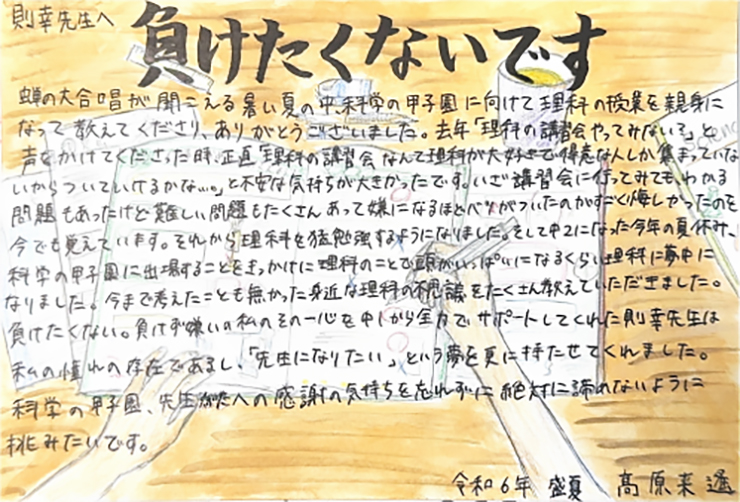 則幸先生へ
負けたくないです
蝉の大合唱が聞こえる暑い夏の中、科学の甲子園に向けて理科の授業を親身に
なって教えてくださり、ありがとうございました。去年「理科の講習会やってみない?」と
声をかけてくださった時、正直「理科の講習会なんて理科が大好きで得意な人しか集まっていな
いからついていけるかな…。」と不安な気持ちが大きかったです。いざ講習会に行ってみてもわかる
問題もあったけど難しい問題もたくさんあって嫌になるほどペケがついたのがすごく悔しかったのを
今でも覚えています。それから理科を猛勉強するようになりました。そして中2になった今年の夏休み、
科学の甲子園に出場することをきっかけに理科のことで頭がいっぱいになるくらい理科に夢中に
なりました。今まで考えたことも無かった身近な理科の不思議をたくさん教えていただきました。
負けたくない。負けず嫌いの私のその一心を中1から全力でサポートしてくれた則幸先生は
私の憧れの存在であるし、「先生になりたい」という夢を更に持たせてくれました。
科学の甲子園、先生がたへの感謝の気持ちを忘れずに絶対に諦めないように
挑みたいです。
令和6年 盛夏 高原来遥